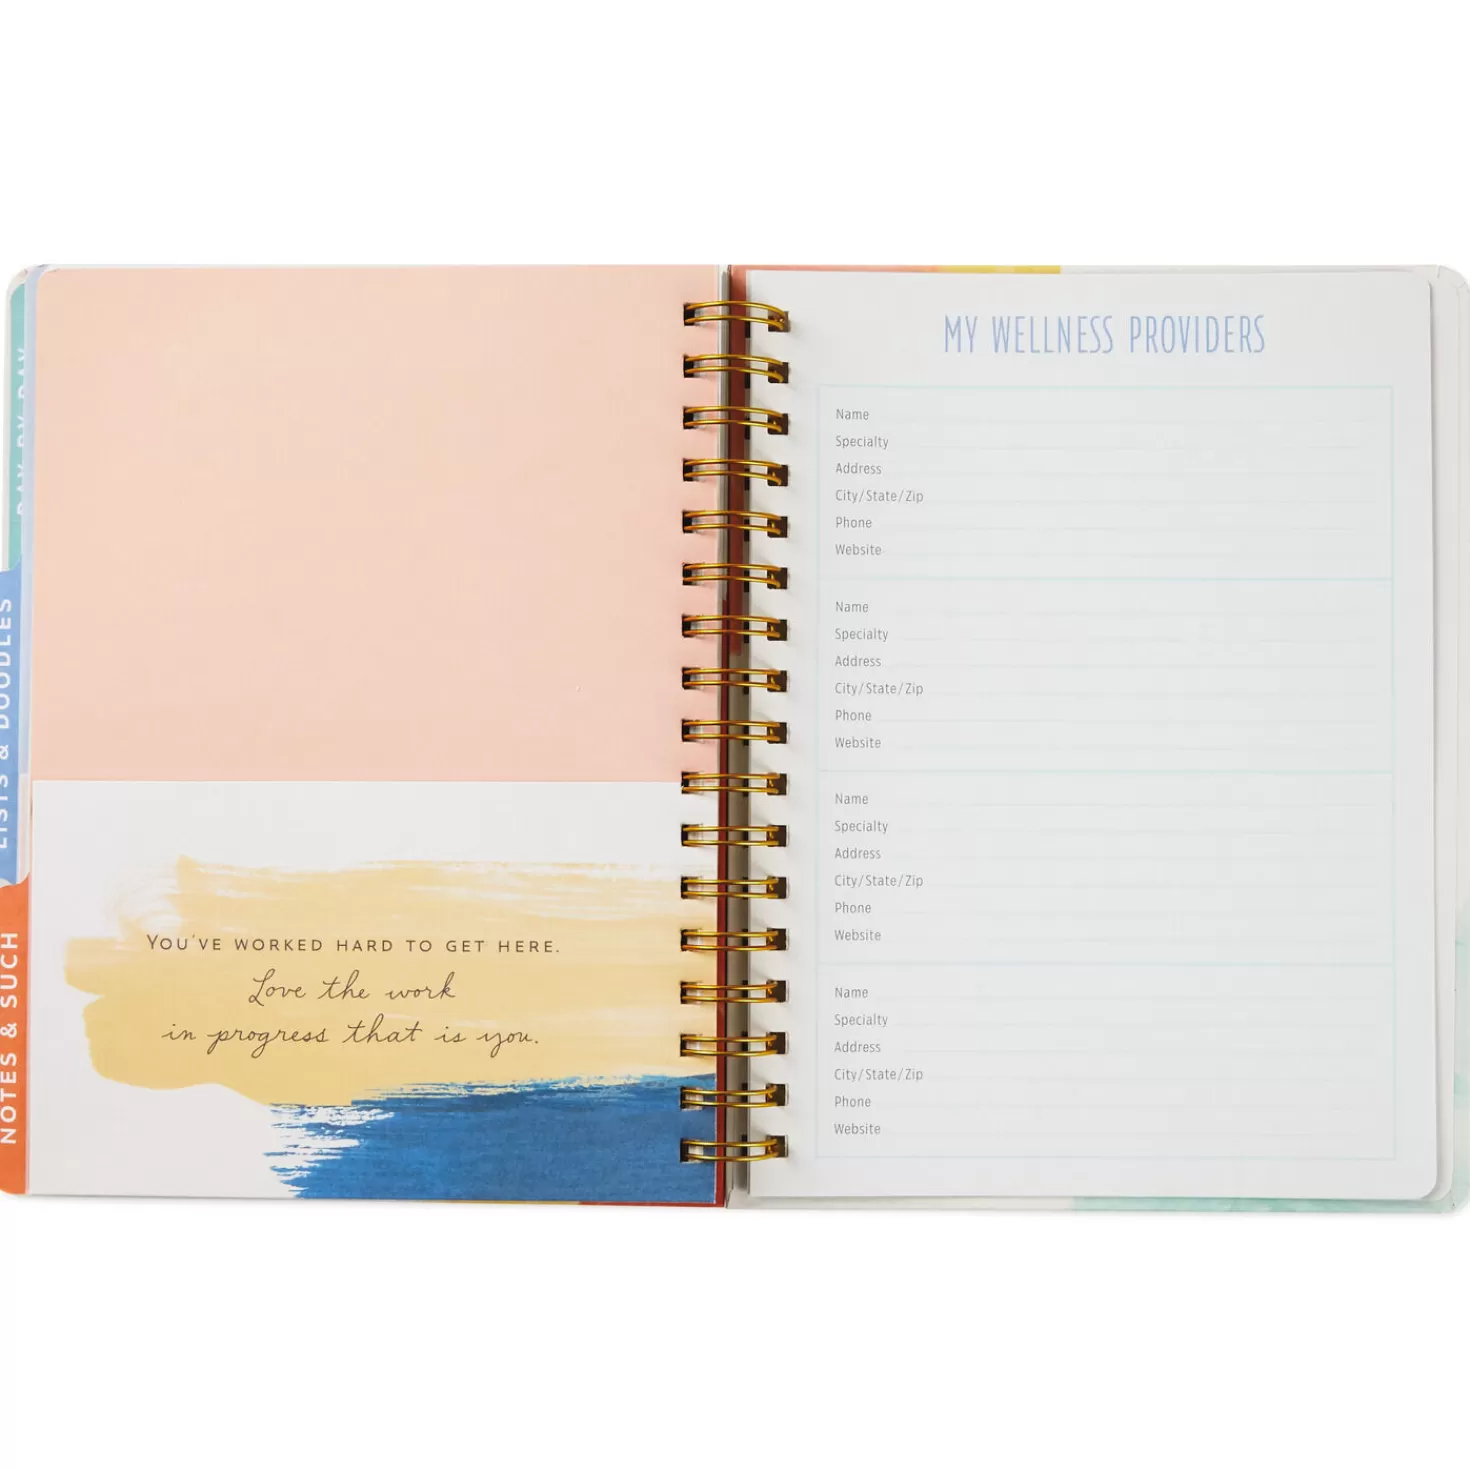 DAY BY DAY
LISTS & DOODLES
NOTES & SUCH
YOU'VE WORKED HARD TO GET HERE.
Love the work
in progress that is you.
MY WELLNESS PROVIDERS
Name
Specialty
Address
City/State/Zip
Phone
Website
Name
Specialty
Address
City/State/Zip
Phone
Website
Name
Specialty
Address
City/State/Zip
Phone
Website
Name
Specialty
Address
City/State/Zip
Phone
Website